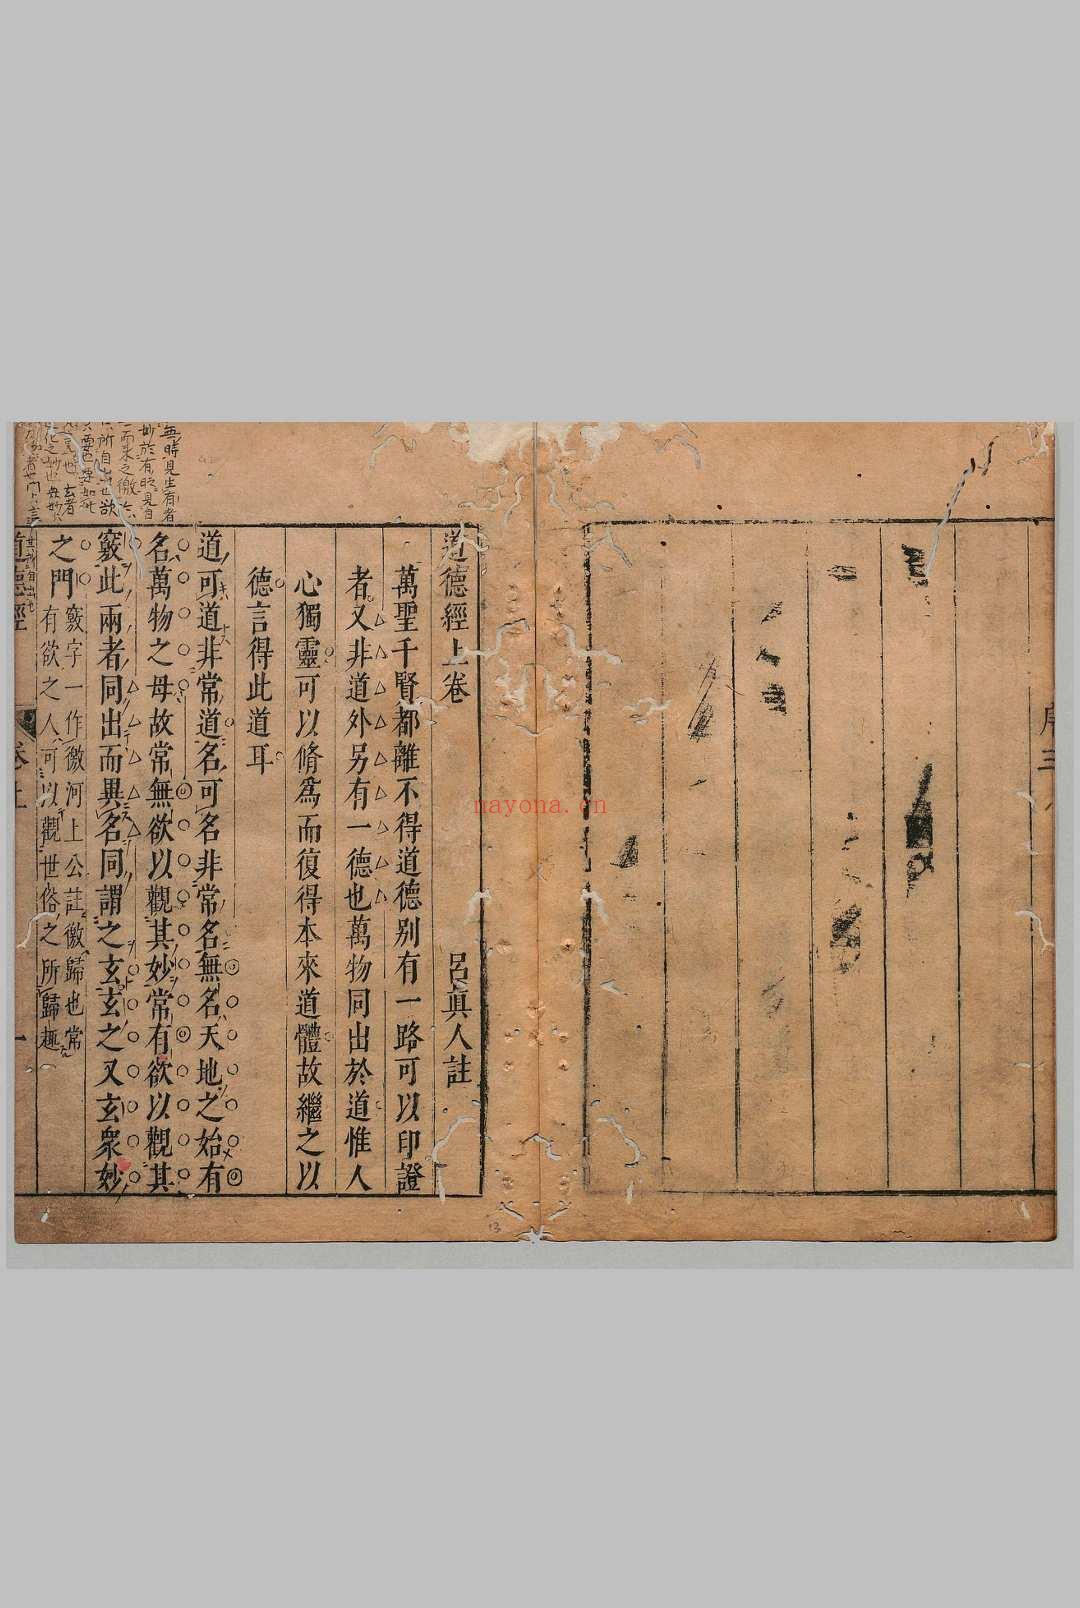 序 三
道德經上卷
呂眞人註
萬聖千賢都離不得道德别有一路可以印證
者又非道外另有一德也萬物同出於道惟人
心獨靈可以脩爲而復得本來道體故繼之以
德言得此道耳
道可道非常道名可名非常名無名天地之始有
名萬物之母故常無欲以觀其妙常有欲以觀其
竅此兩者同出而異名同謂之玄玄之又玄衆妙
之門
竅字一作徼河上公註徼歸也常
有欲之人可以觀世俗之所歸趣
道德經 卷上 一
nayona.cn
13